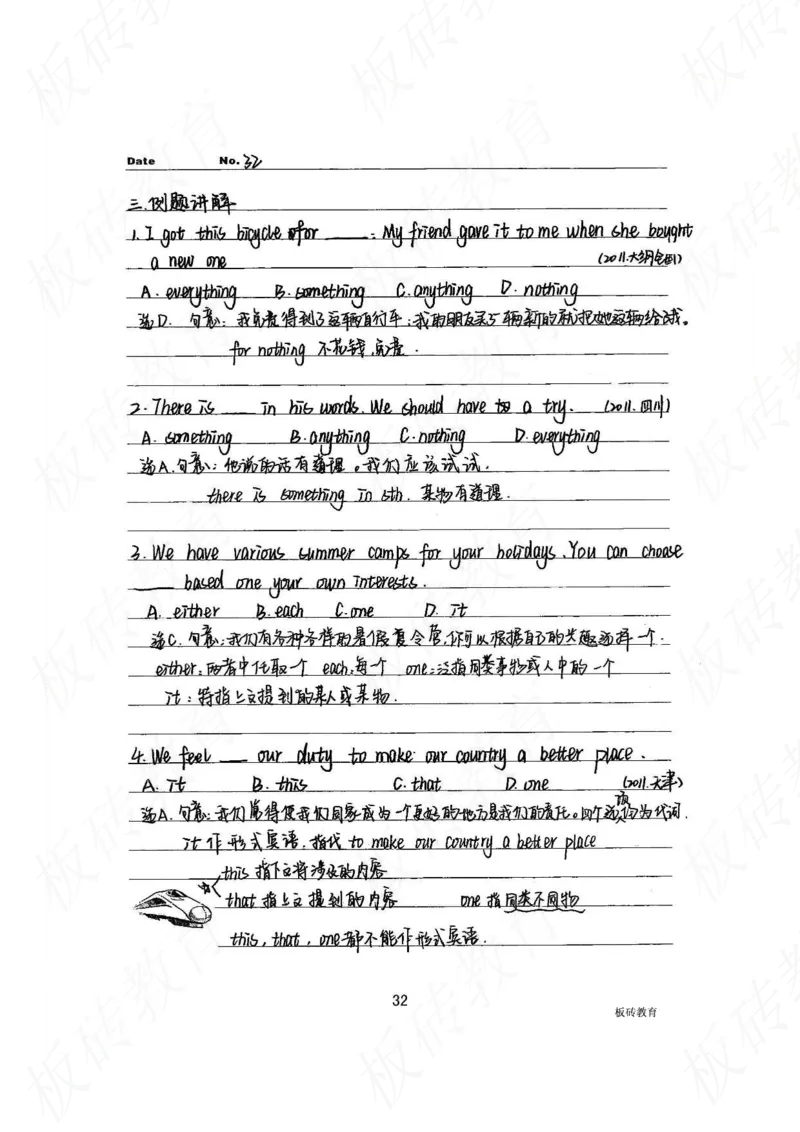 Date No. 32
三.例题讲解
1. I got this bicycle for ____: My friend gave it to me when she bought
a new one (2011.大纲全国)
A. everything B. something C. anything D. nothing
选D. 句意: 我免费得到了这辆自行车:我的朋友买了辆新的就把她这辆给了我。
for nothing 不花钱,免费.
2. There is ____ in his words. We should have a try. (2011.四川)
A. something B. anything C. nothing D. everything
选A. 句意: 他说的话有道理。我们应该试试.
there is something in sth. 某物有道理.
3. We have various summer camps for your holidays. You can choose
____ based one your own interests.
A. either B. each C. one D. it
选C. 句意:我们有各种各样的暑假夏令营,你可以根据自己的兴趣选择一个.
either:两者中任取一个 each:每个 one:泛指同类事物或人中的一个
it: 特指上文提到的某人或某物.
4. We feel ____ our duty to make our country a better place.
A. it B. this C. that D. one (2011.天津)
选A. 句意:我们觉得使我们国家成为一个更好的地方是我们的责任。四个选项均为代词.
it 作形式宾语, 指代 to make our country a better place
this 指下文将涉及的内容
that 指上文提到的内容 one 指同类不同物
this, that, one 都不能作形式宾语.
32
板砖教育